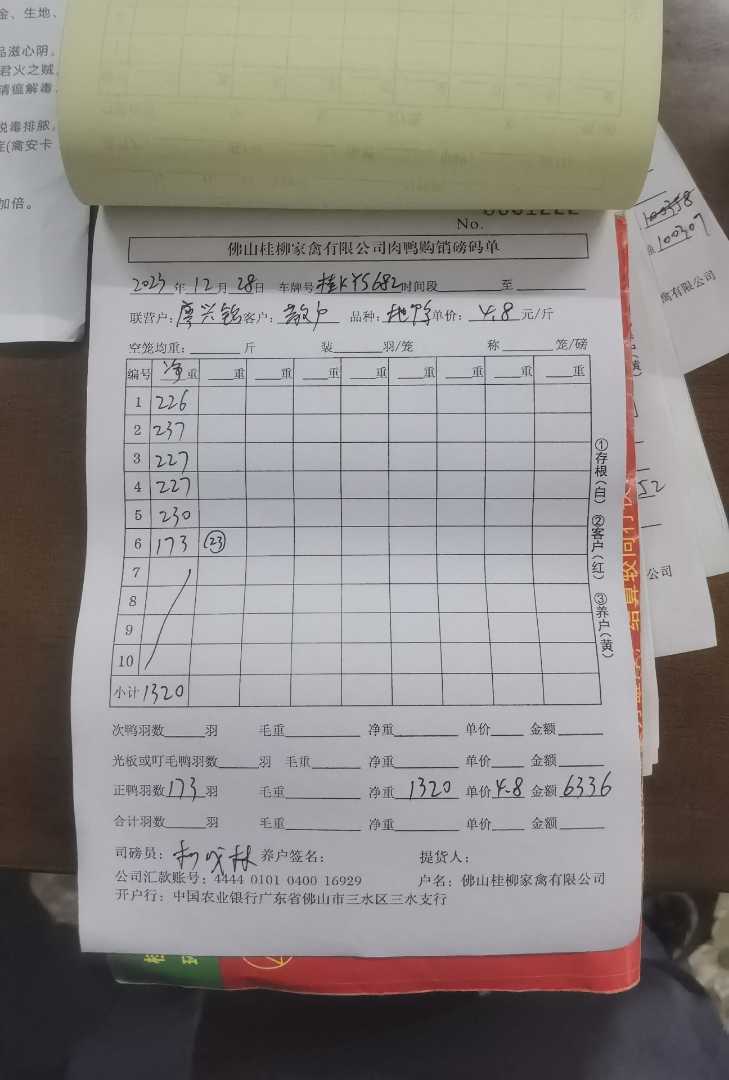 金、生地、
品滋心阴,
君火之贼,
清瘟解毒,
脱毒排脓,
症(禽安卡
加倍。
100358
100307
禽有限公司
52
公司
No. 0001222
佛山桂柳家禽有限公司肉鸭购销磅码单
2023年12月28日 车牌号桂KY5682时间段____至____
联营户:廖兴锦客户:散户 品种:单价:4.8元/斤
空笼均重:____斤 装____羽/笼 称____笼/磅
编号 净重 ___重 ___重 ___重 ___重 ___重 ___重 ___重 ___重
1 226
2 237
3 227
4 227
5 230
6 173 (23)
7
8
9
10
小计 1320
①存根(白) ②客户(红) ③养户(黄)
次鸭羽数____羽 毛重____ 净重____ 单价____ 金额____
光板或叮毛鸭羽数____羽 毛重____ 净重____ 单价____ 金额____
正鸭羽数173羽 毛重____ 净重1320 单价4.8 金额6336
合计羽数____羽 毛重____ 净重____ 单价____ 金额____
司磅员: 养户签名: 提货人:
公司汇款账号:4444 0101 0400 16929 户名:佛山桂柳家禽有限公司
开户行:中国农业银行广东省佛山市三水区三水支行